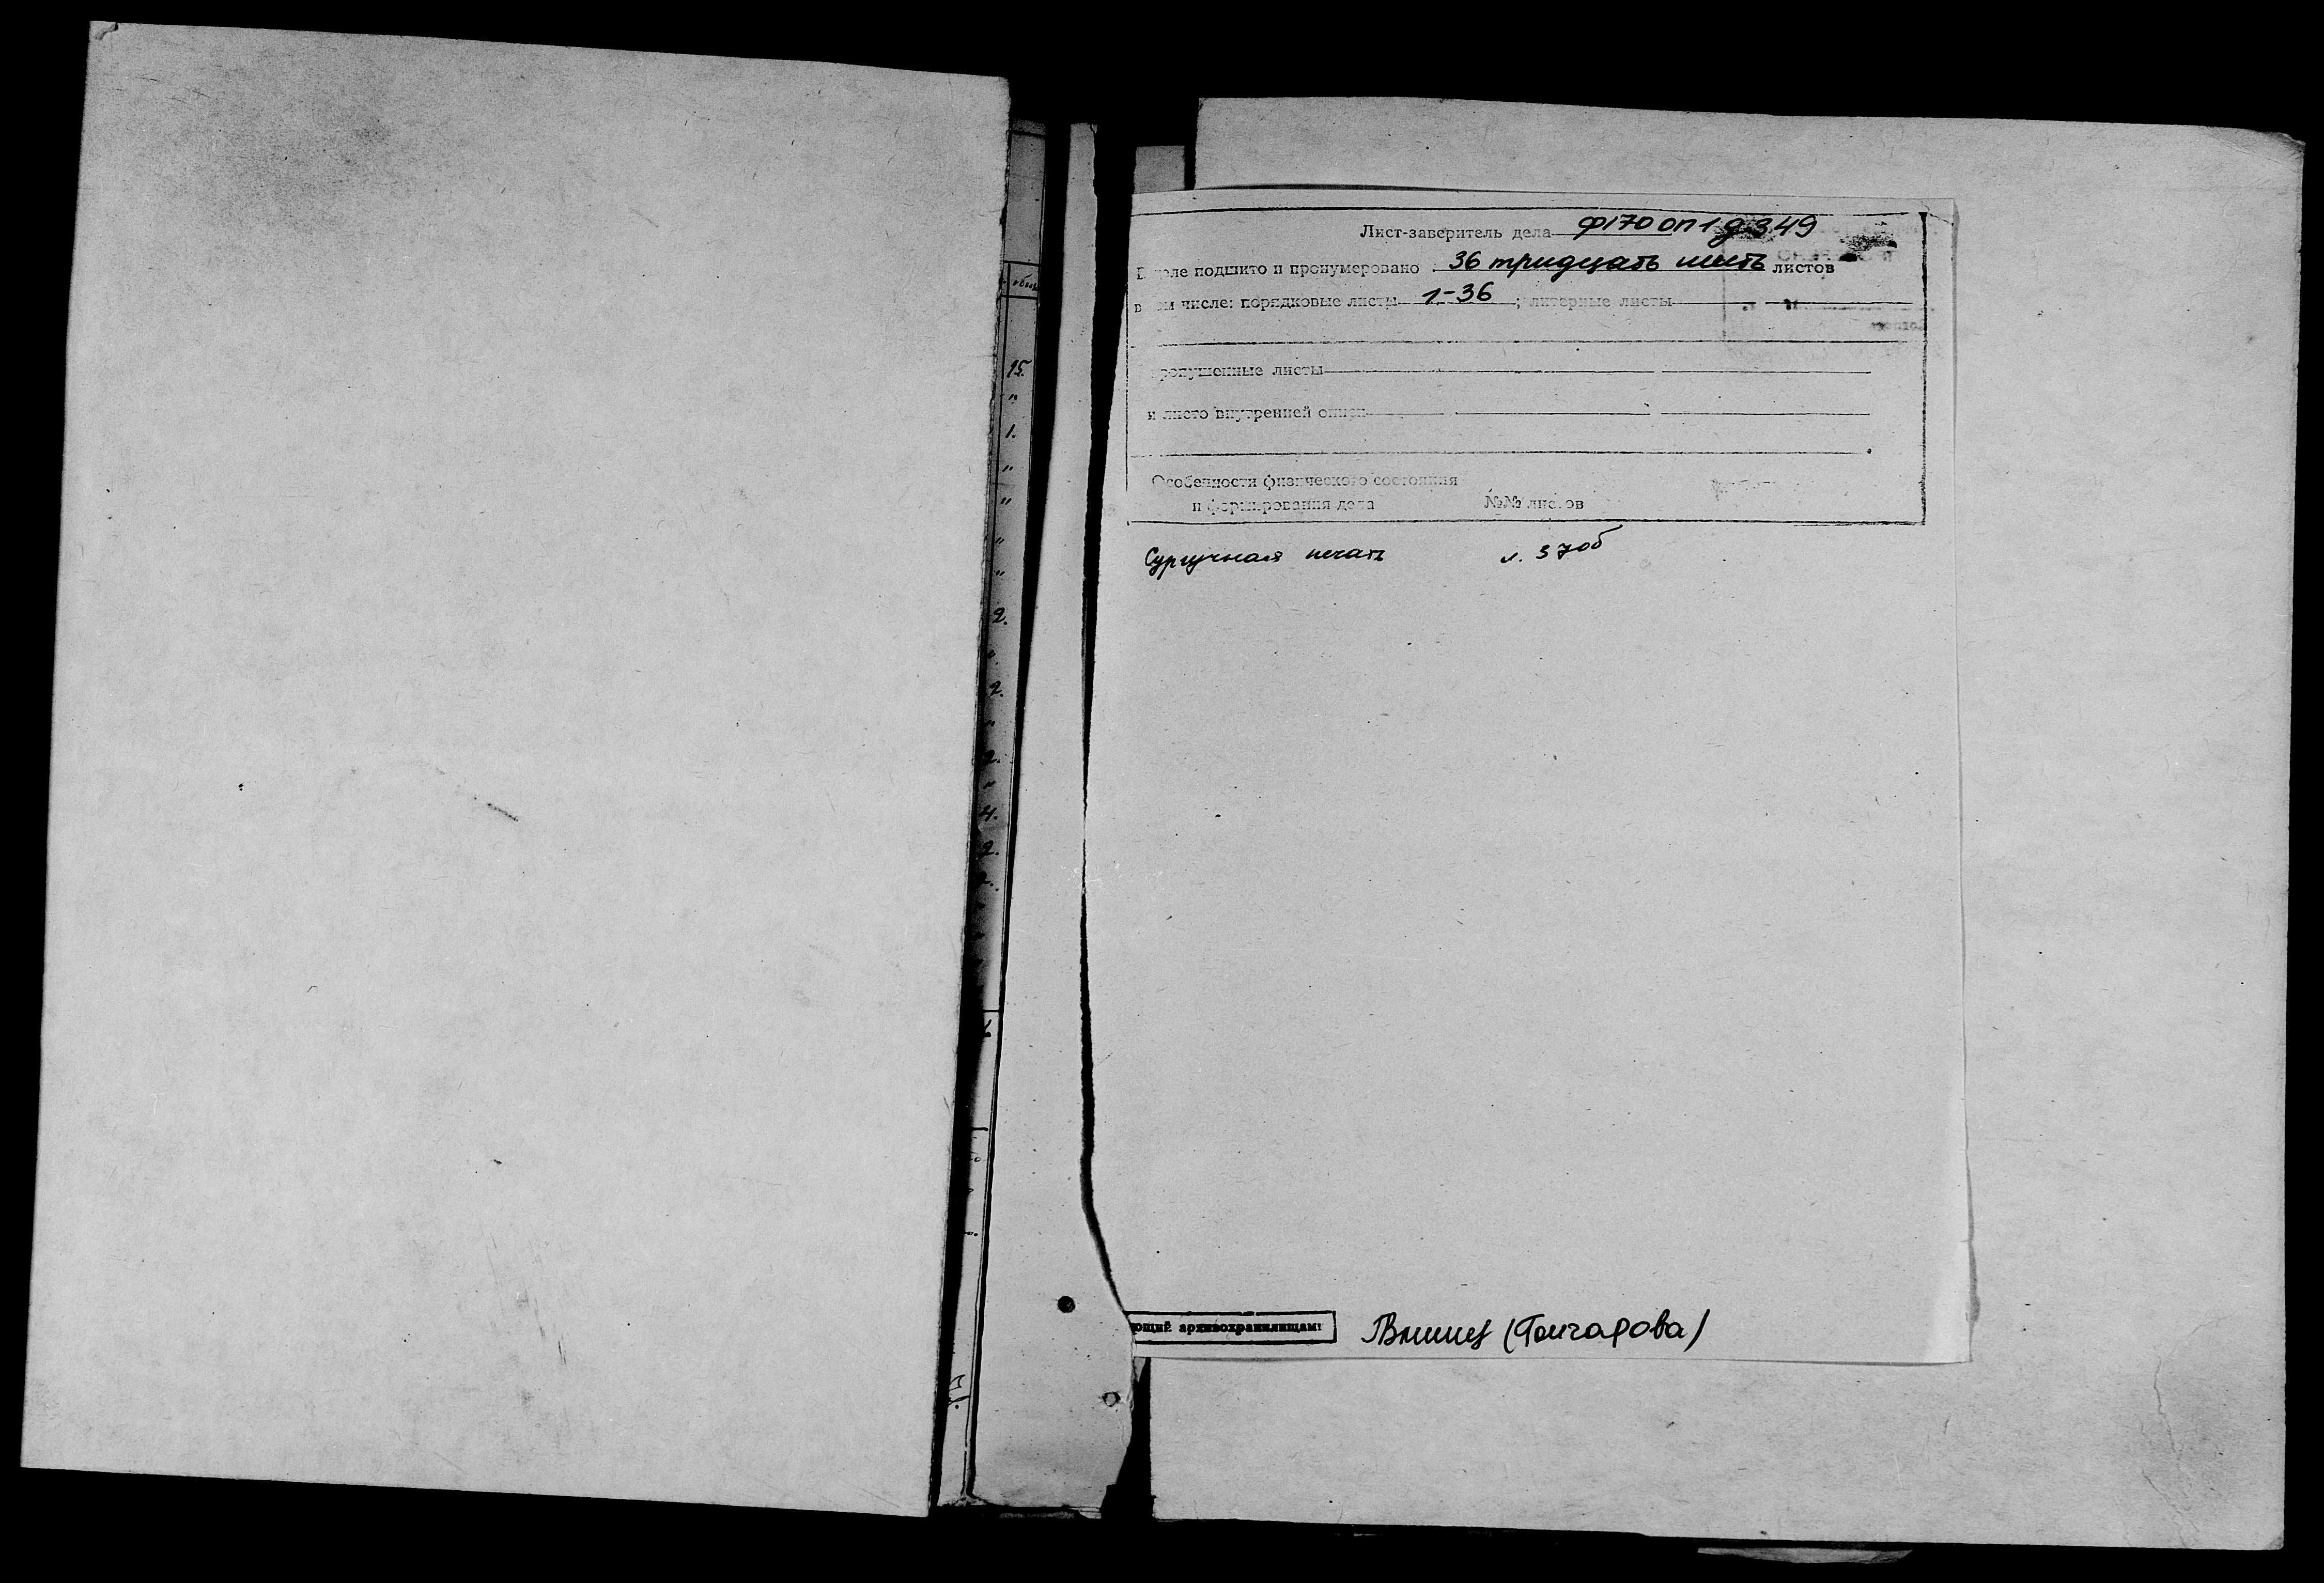 Лист-заверитель дела ф170 оп1 д.349
В деле подшито и пронумеровано 36 тридцать шесть листов
в том числе: порядковые листы 1-36; литерные листы
пропущенные листы
и листо внутренней описи
Особенности физического состояния
и формирования дела №№ листов
Сургучная печать л. 37об
ющий архивохранилищам
(Гончарова)
15.
"
1.
"
"
"
"
2.
"
2.
"
2.
"
4.
2.